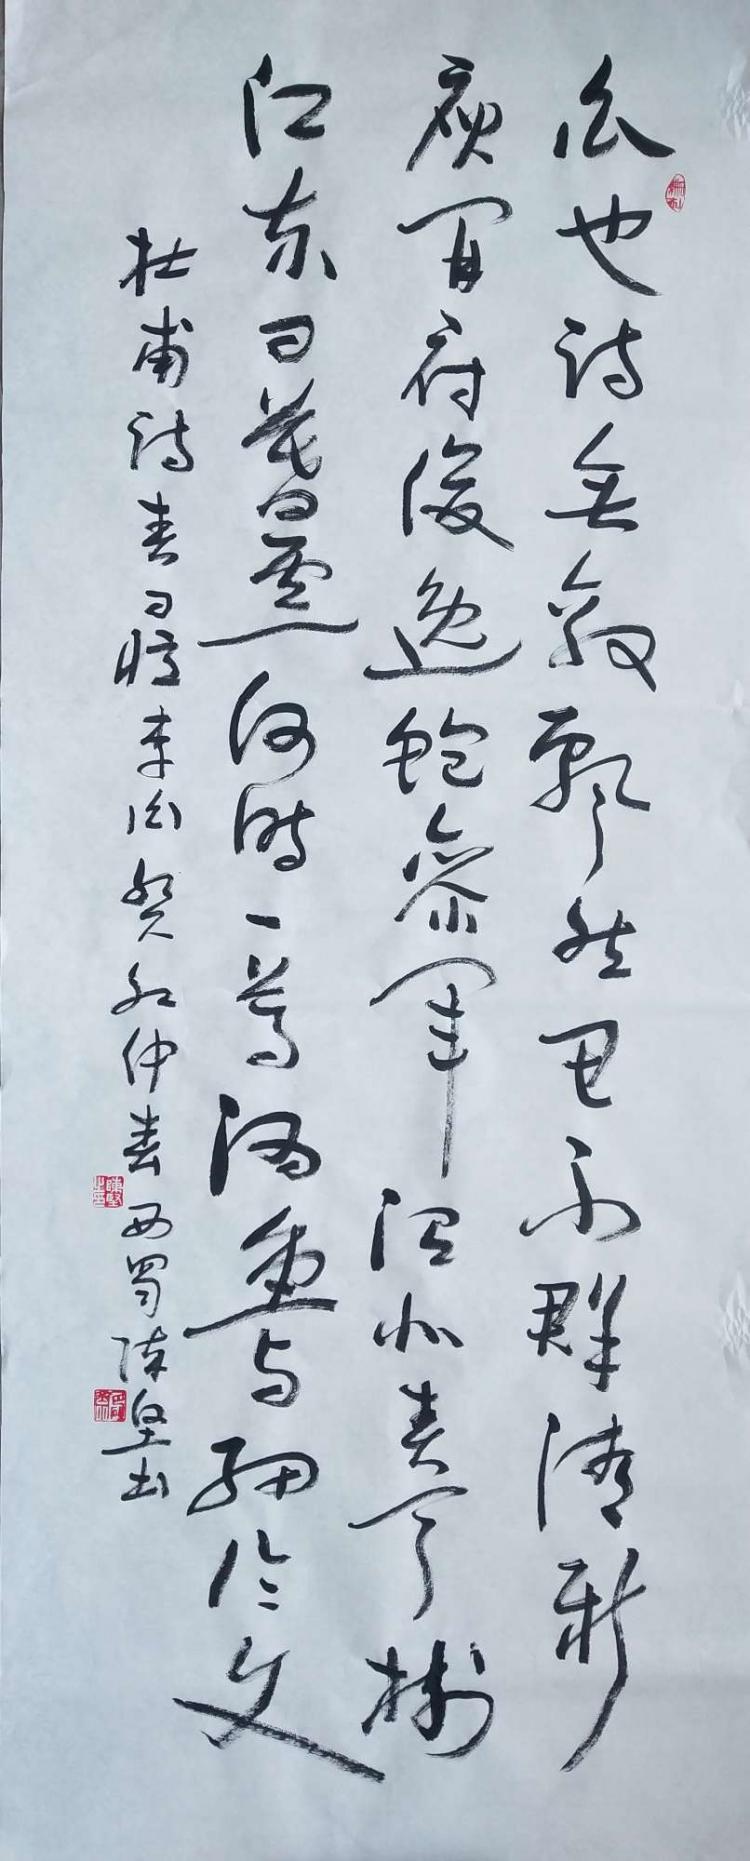 白也诗无敌飘然思不群清新
庾开府俊逸鲍参军渭北春天树
江东日暮云何时一尊酒重与细论文
杜甫诗春日忆李白癸卯仲春西蜀陈坚书